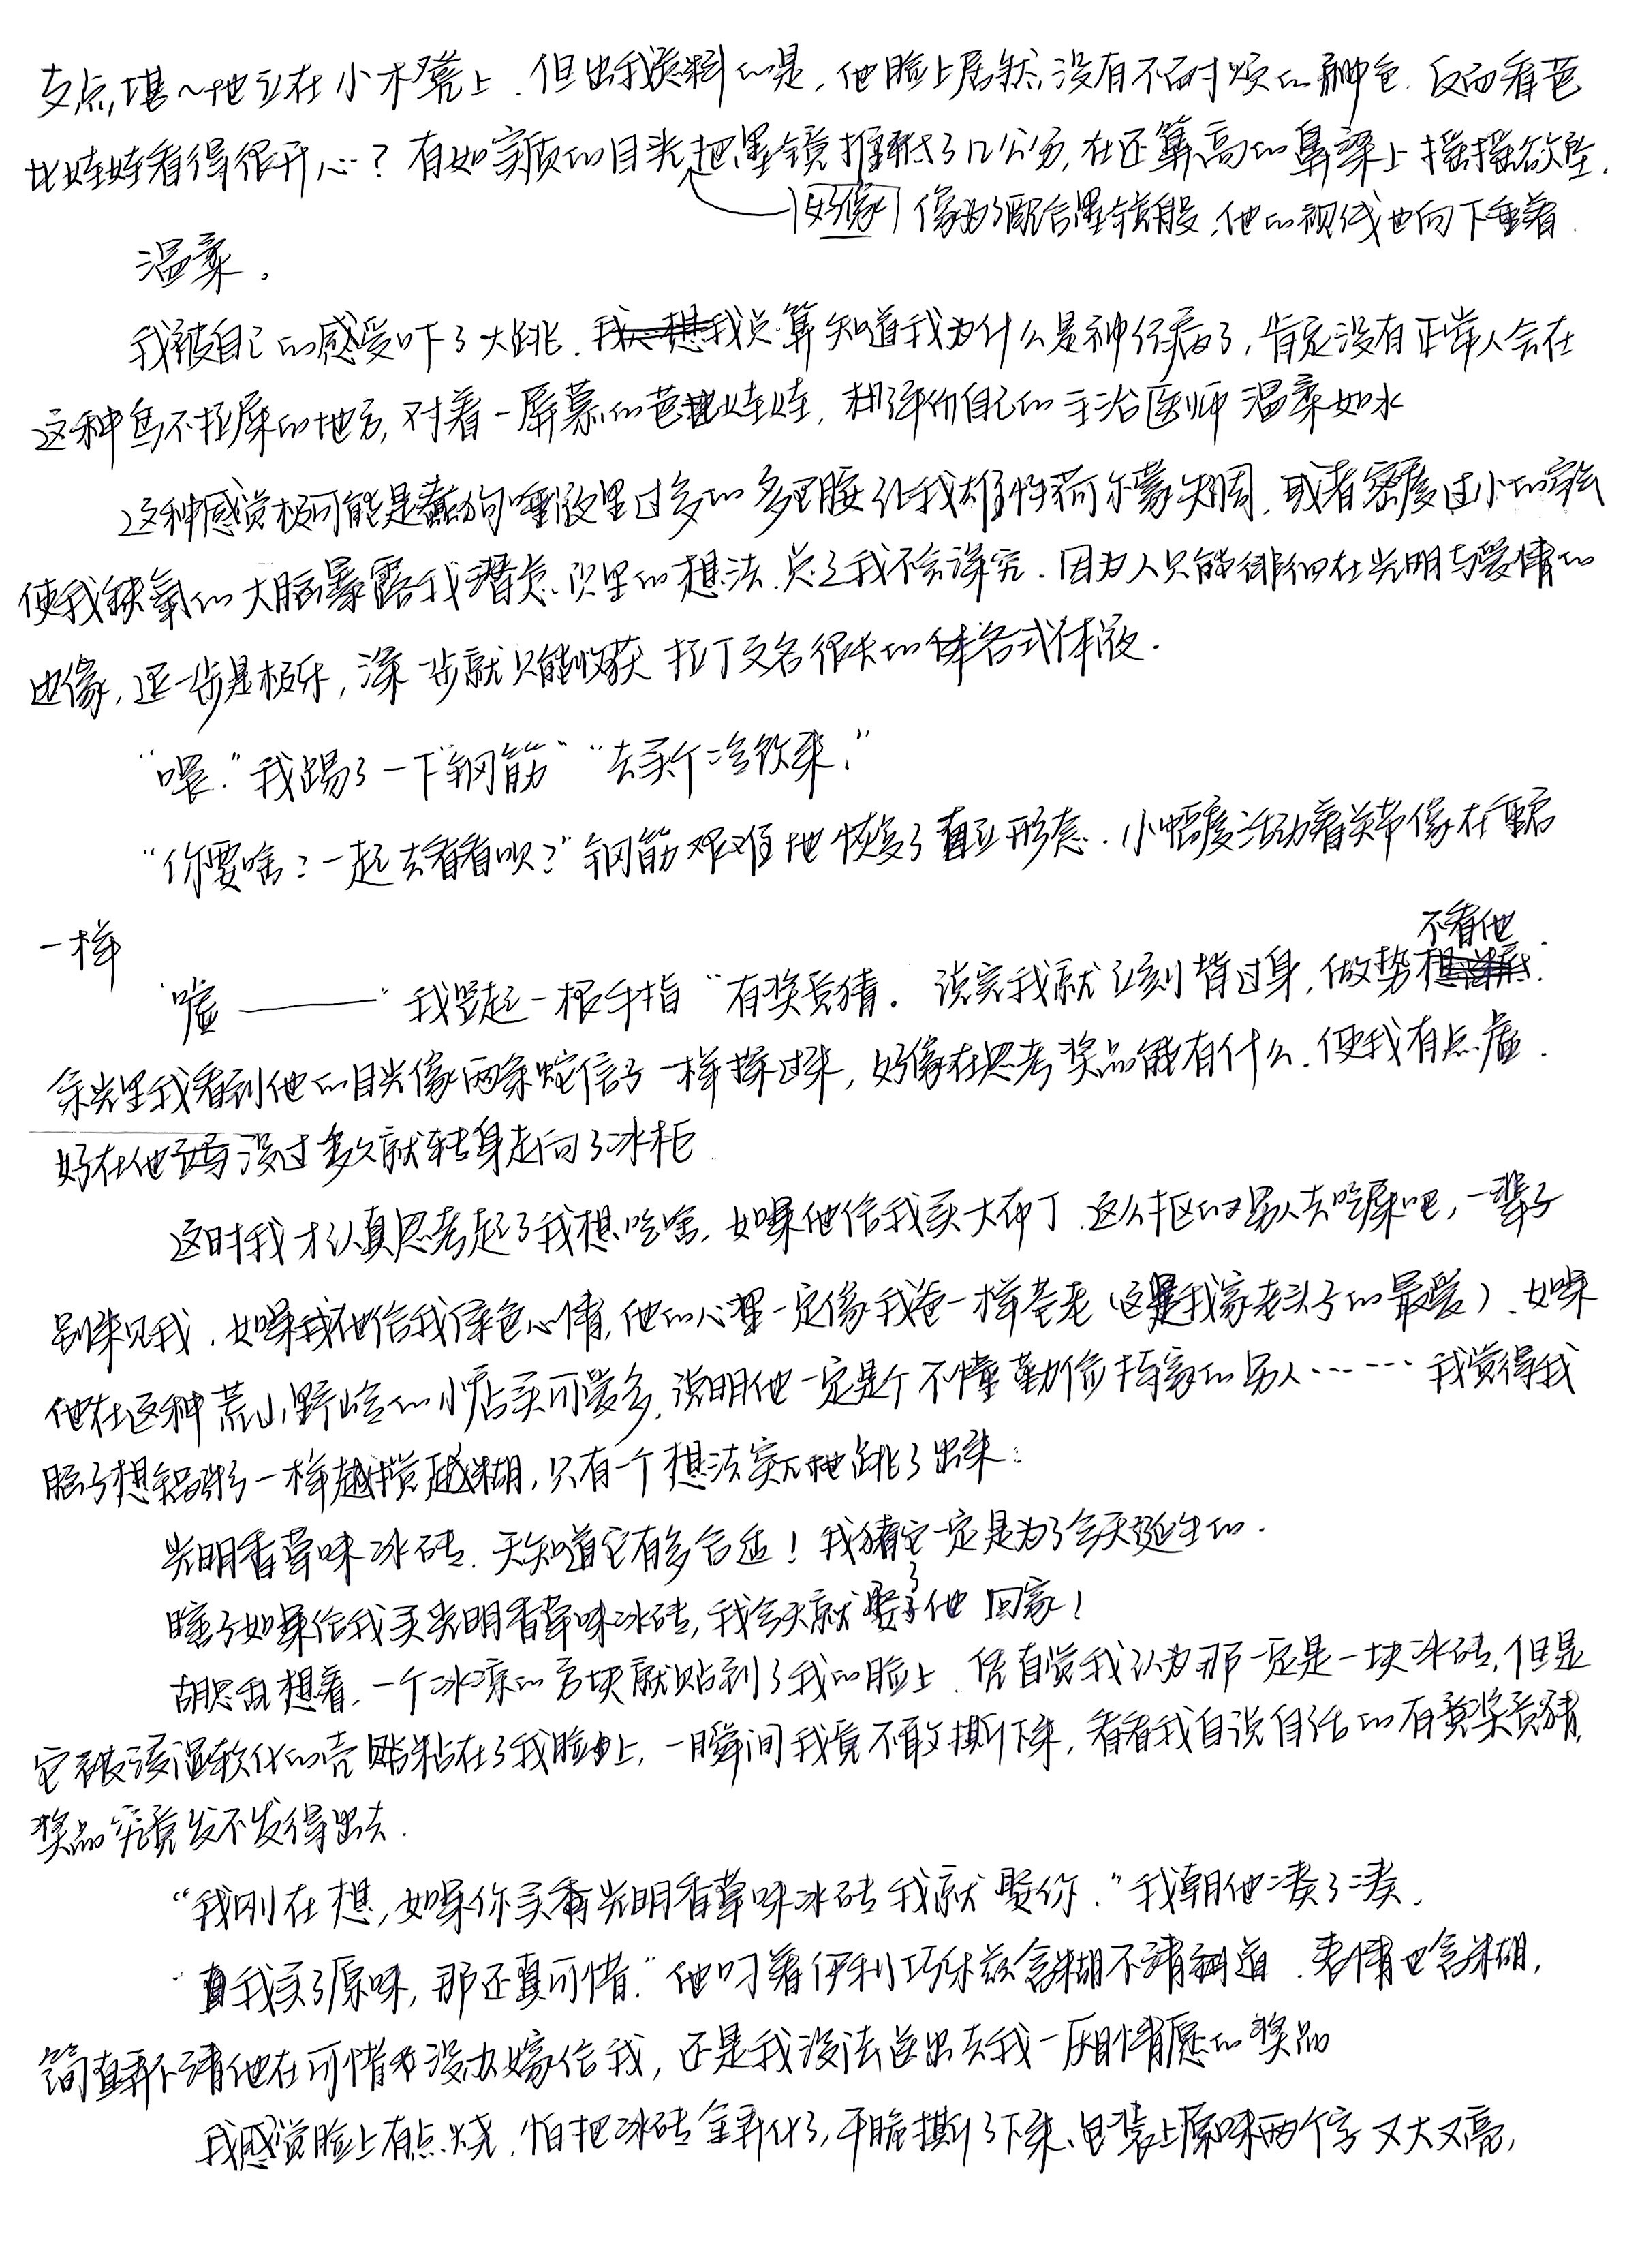 支点,堪堪地立在小木凳上.但出我预料的是,他脸上居然没有不耐烦的神色.反而看芭
比娃娃看得很开心?有如实质的目光把墨镜推移了几公分,在还算高的鼻梁上摇摇欲坠.
好像像为了配合墨镜般,他的视线也向下垂着.
温柔.
我被自己的感受吓了大跳.我想我总算知道我为什么是神经病了,肯定没有正常人会在
这种鸟不拉屎的地方,对着一屏幕的芭比娃娃,想评价自己的主治医师温柔如水
这种感觉极可能是蠢狗唾液里过多的多巴胺让我雄性荷尔蒙失调,或者密度过小的空气
使我缺氧的大脑暴露我潜意识里的想法.总之我不会深究.因为人只能徘徊在光明与爱情的
边缘,退一步是极乐,深一步就只能收获拉丁文名很长的各式体液.
“喂.”我踢了一下“钢筋”“去买个冷饮来.”
“你要啥?一起去看看呗?”钢筋艰难地恢复了直立形态.小幅度活动着关节像在重启
一样
不看他.
“嘘———”我竖起一根手指“有奖竞猜.说完我就立刻背过身,做势
余光里我看到他的目光像两条蛇信子一样探过来,好像在思考奖品能有什么.使我有点虚.
好在他没过多久就转身走向了冰柜
这时我才认真思考起了我想吃啥.如果他给我买大布丁.这么抠的男人去吃屎吧,一辈子
别来见我.如果他给我绿色心情,他的心理一定像我爸一样苍老(这是我家老头子的最爱).如果
他在这种荒山野岭的小店买可爱多,说明他一定是个不懂勤俭持家的男人……我觉得我
脑子想锅粥一样越搅越糊,只有一个想法突兀地跳了出来:
光明香草味冰砖.天知道它有多合适!我猜它一定是为了今天诞生的.
瞎子如果给我买光明香草味冰砖,我今天就娶了他回家!
胡思乱想着.一个冰凉的方块就贴到了我的脸上.凭直觉我认为那一定是一块冰砖,但是
它被液温软化的壳粘在了我脸上,一瞬间我竟不敢撕下来,看看我自说自话的有奖竞猜,
奖品究竟发不发得出去.
“我刚在想,如果你买光明香草味冰砖我就娶你.”我朝他凑了凑.
“我买了原味,那还真可惜.”他叼着伊利巧乐兹含糊不清道.表情也含糊,
简直弄不清他在可惜没办嫁给我,还是我没法送出去我一厢情愿的奖品
我感觉脸上有点烧.怕把冰砖全弄化了,干脆撕了下来.包装上原味两个字又大又亮,